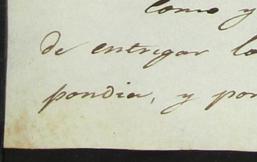 como y
de entregar lo
pondia, y por